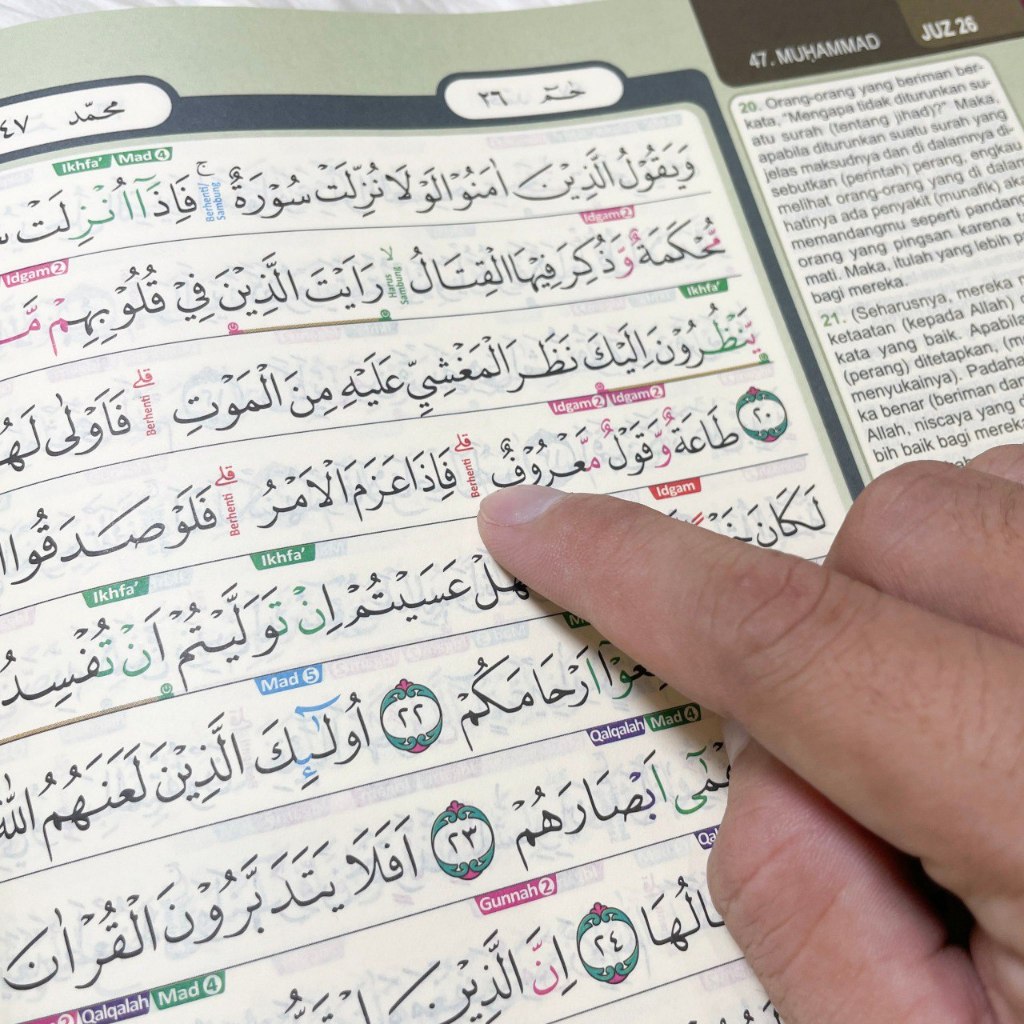 47. MUḤAMMAD
JUZ 26
محمّد ٤٧
حٰمۤ ٢٦
Ikhfa' Mad 4
وَيَقُوْلُ الَّذِيْنَ اٰمَنُوْا لَوْلَا نُزِّلَتْ سُوْرَةٌ ۚ Berhenti/ Sambung فَاِذَآ اُنْزِلَتْ
Idgam 2 Idgam 2
مُّحْكَمَةٌ وَّذُكِرَ فِيْهَا الْقِتَالُ ۙ Harus Sambung رَاَيْتَ الَّذِيْنَ فِيْ قُلُوْبِهِمْ
Ikhfa'
يَّنْظُرُوْنَ اِلَيْكَ نَظَرَ الْمَغْشِيِّ عَلَيْهِ مِنَ الْمَوْتِ ۗ Berhenti فَاَوْلٰى
Idgam 2 Idgam 2
٢٠ طَاعَةٌ وَّقَوْلٌ مَّعْرُوْفٌ ۗ Berhenti فَاِذَا عَزَمَ الْاَمْرُ ۗ Berhenti فَلَوْ صَدَقُوا
Idgam
لَكَانَ
Ikhfa' Ikhfa'
عَسَيْتُمْ اِنْ تَوَلَّيْتُمْ اَنْ تُفْسِدُ
Mad 5
اَرْحَامَكُمْ ٢٢ اُولٰۤىِٕكَ الَّذِيْنَ لَعَنَهُمُ اللّٰهُ
Qalqalah Mad 4
اَبْصَارَهُمْ ٢٣ اَفَلَا يَتَدَبَّرُوْنَ الْقُرْاٰنَ
Gunnah 2
٢٤ اِنَّ الَّذِيْنَ
Qalqalah Mad 4
20. Orang-orang yang beriman ber-
kata, "Mengapa tidak diturunkan su-
atu surah (tentang jihad)?" Maka,
apabila diturunkan suatu surah yang
jelas maksudnya dan di dalamnya di-
sebutkan (perintah) perang, engkau
melihat orang-orang yang di dalam
hatinya ada penyakit (munafik)
memandangmu seperti
orang yang pingsan karena
mati. Maka, itulah yang lebih
bagi mereka.
21. (Seharusnya, mereka
ketaatan (kepada Allah)
kata yang baik. Apabila
(perang) ditetapkan,
menyukainya).
ka benar (beriman dan
Allah, niscaya yang
bih baik bagi mereka